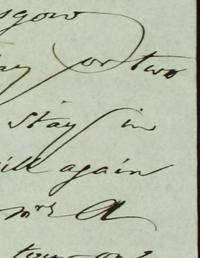 sgow
day or two
stay in
will again
Mrs A